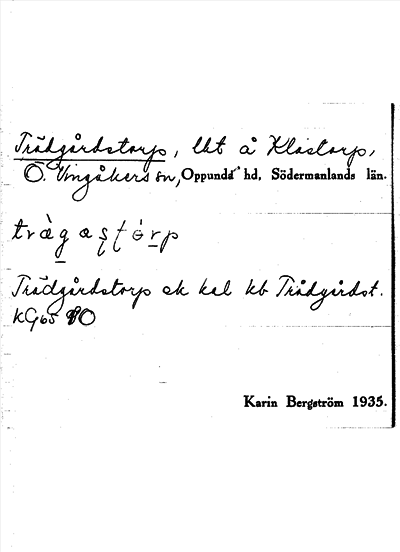 Trädgårdstorp, lht å Klastorp,
Ö. Vingåkers sn, Oppunda hd, Södermanlands län.
tràgastórp
Trädgårdstorp ek kal kb Trädgårdst.
KG65 90
Karin Bergström 1935.